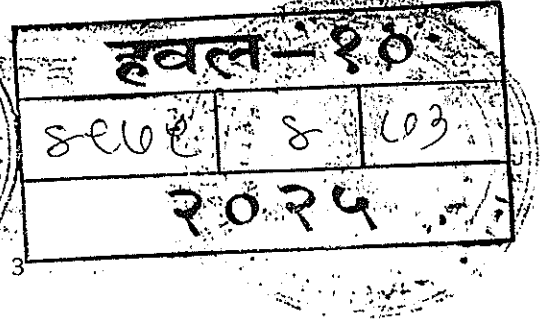 हवल-१०
४९७९ ४ ७३
२०२५
3